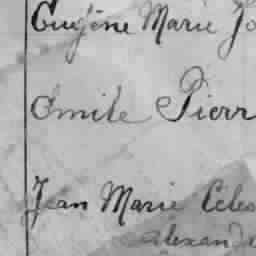 Eugène Marie Jo
Emile Pierr
Jean Marie Celes
alexand